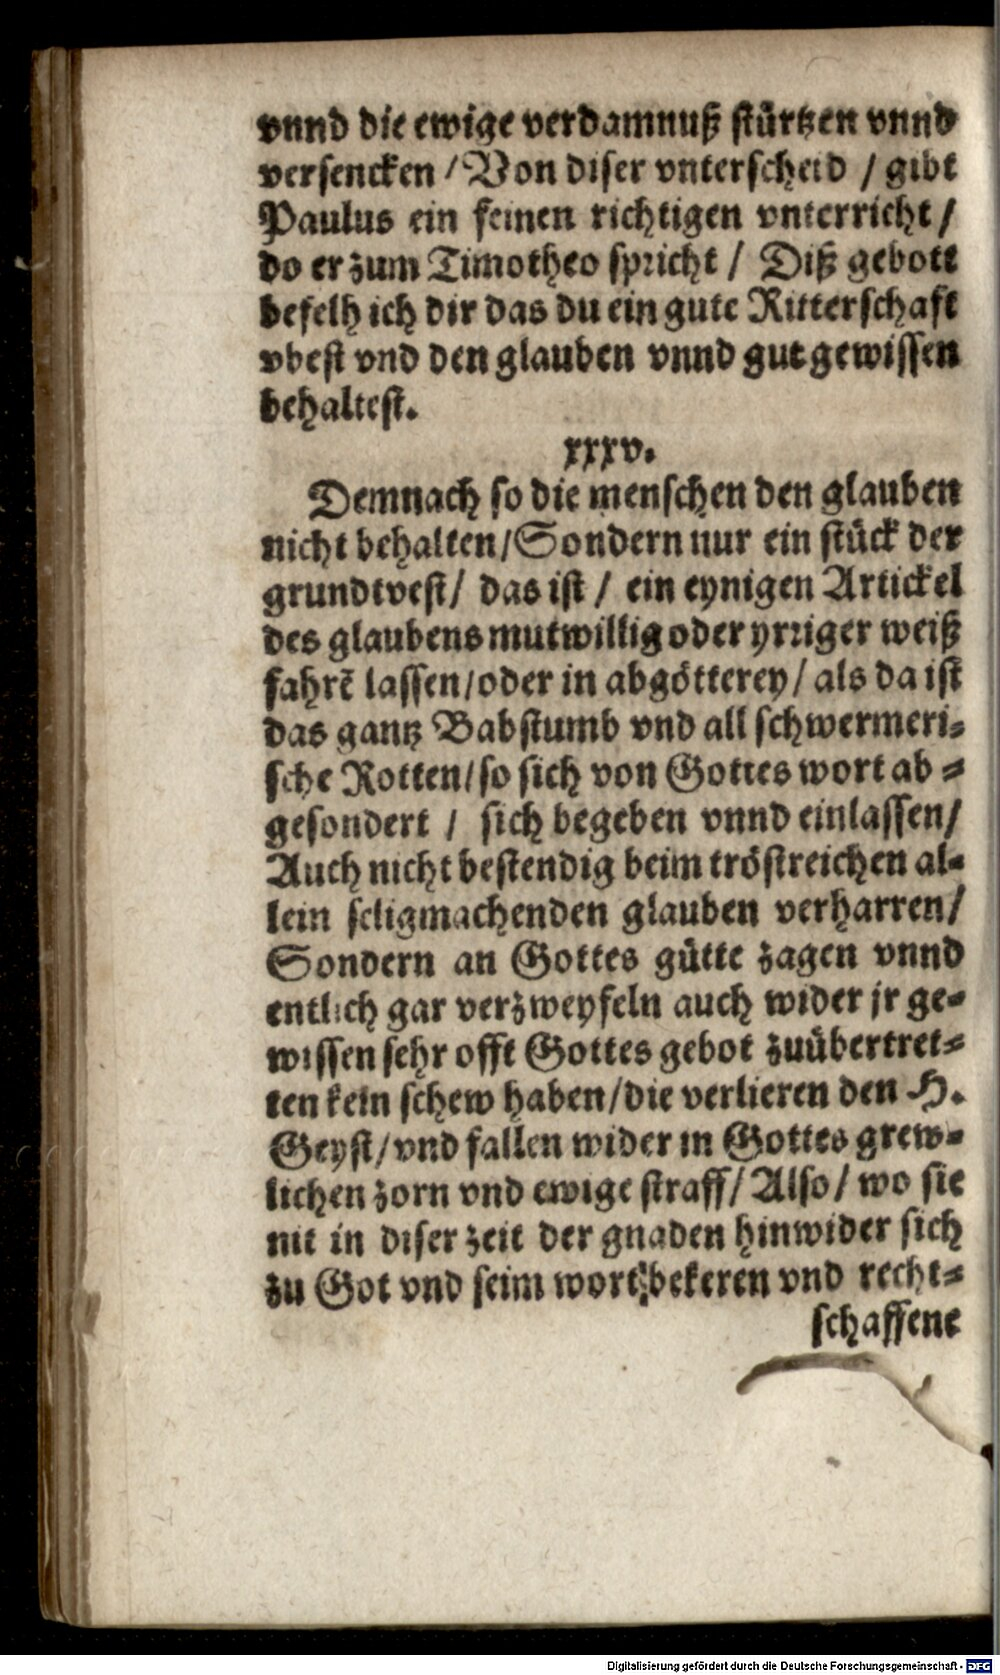 vnnd die ewige verdamnuß stürtzen vnnd
versencken / Von diser vnterscheid / gibt
Paulus ein feinen richtigen vnterricht /
do er zum Timotheo spricht / Diß gebott
befelh ich dir das du ein gute Ritterschaft
vbest vnd den glauben vnnd gut gewissen
behaltest.
xxxv.
Demnach so die menschen den glauben
nicht behalten / Sondern nur ein stück der
grundtvest / das ist / ein eynigen Artickel
des glaubens mutwillig oder yrriger weiß
fahrē lassen / oder in abgötterey / als da ist
das gantz Babstumb vnd all schwermeri-
sche Rotten / so sich von Gottes wort ab-
gesondert / sich begeben vnnd einlassen /
Auch nicht bestendig beim tröstreichen al-
lein seligmachenden glauben verharren /
Sondern an Gottes gütte zagen vnnd
entlich gar verzweyfeln auch wider jr ge-
wissen sehr offt Gottes gebot zuübertret-
ten kein schew haben / die verlieren den H.
Geyst / vnd fallen wider in Gottes grew-
lichen zorn vnd ewige straff / Also / wo sie
nit in diser zeit der gnaden hinwider sich
zu Got vnd seim wort bekeren vnd recht-
schaffene
Digitalisierung gefördert durch die Deutsche Forschungsgemeinschaft - DFG